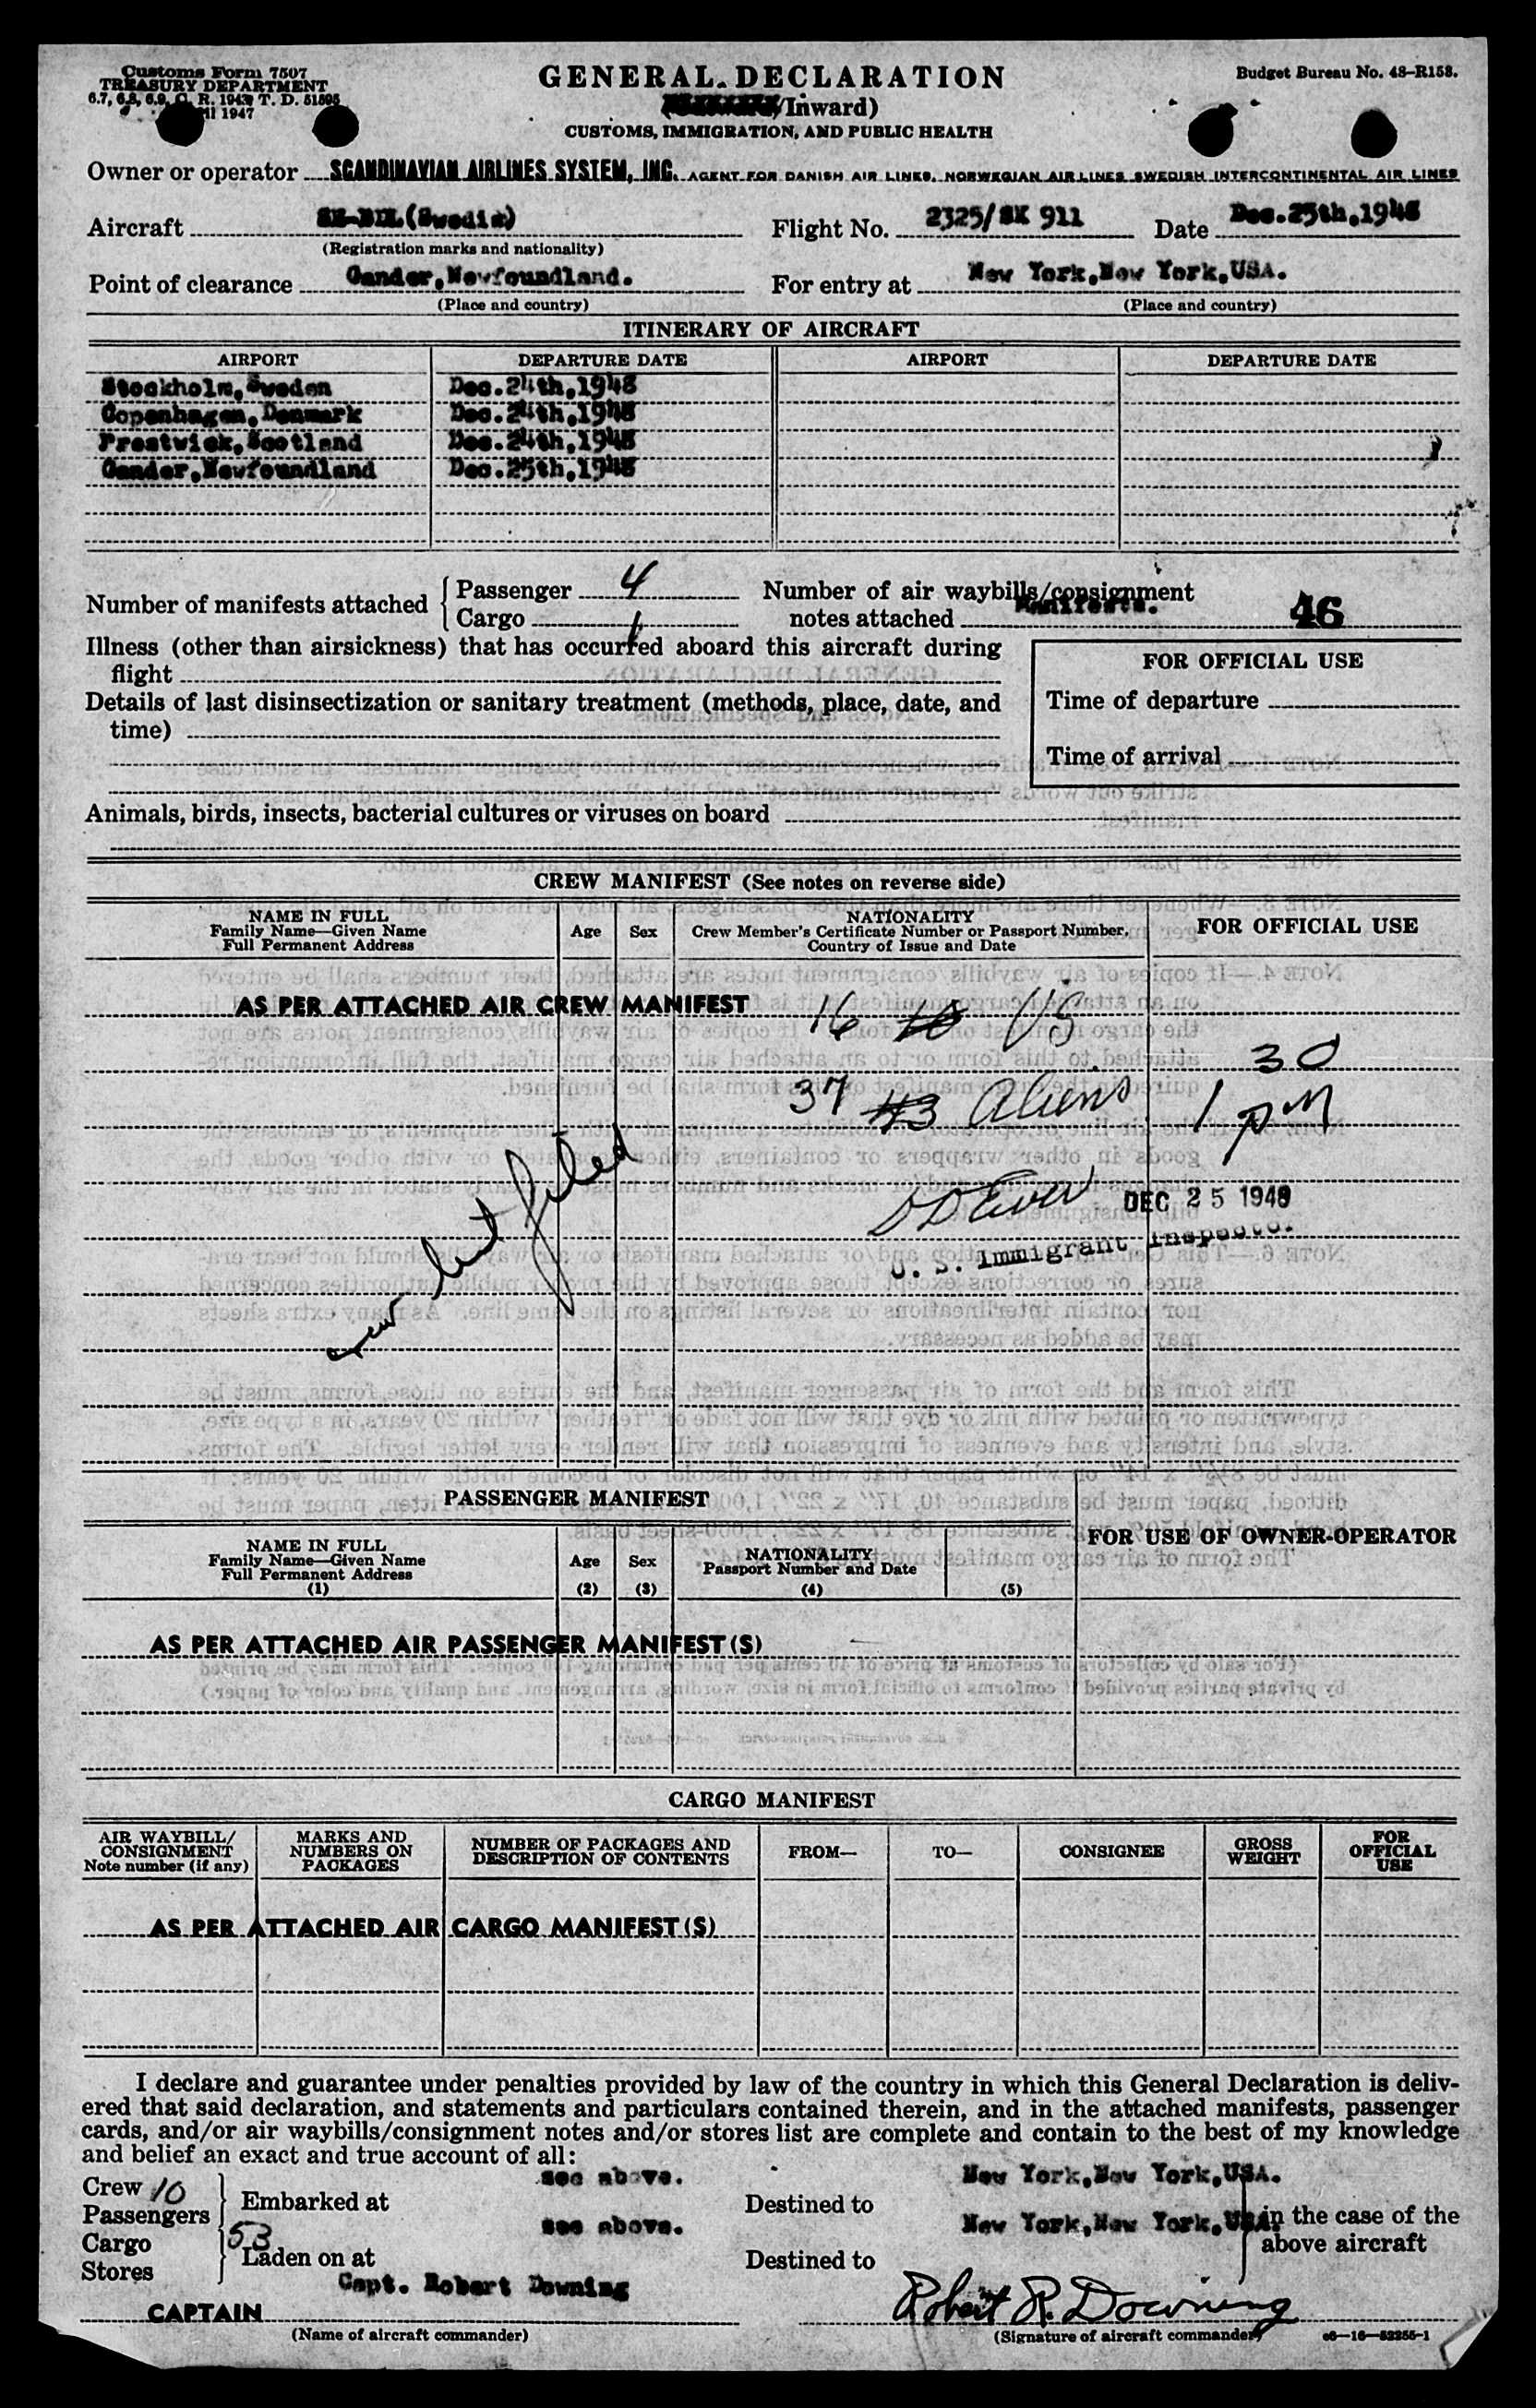 Customs Form 7507
TREASURY DEPARTMENT
6.7, 6.8, 6.9, C. R. 1943; T. D. 51595
1947
GENERAL DECLARATION
/Inward)
CUSTOMS, IMMIGRATION, AND PUBLIC HEALTH
Budget Bureau No. 48-R158.
Owner or operator SCANDINAVIAN AIRLINES SYSTEM, INC. AGENT FOR DANISH AIR LINES, NORWEGIAN AIR LINES SWEDISH INTERCONTINENTAL AIR LINES
Aircraft
(Registration marks and nationality)
Flight No. 2325/SK 911
Date Dec.25th,1948
Point of clearance Gander,Newfoundland.
(Place and country)
For entry at New York,New York,USA.
(Place and country)
ITINERARY OF AIRCRAFT
AIRPORT DEPARTURE DATE AIRPORT DEPARTURE DATE
Stockholm,Sweden Dec.24th,1948
Copenhagen,Denmark Dec.24th,1948
Prestwick,Scotland Dec.24th,1948
Gander,Newfoundland Dec.25th,1948
Number of manifests attached { Passenger 4
Cargo 1
Number of air waybills/consignment
notes attached Manifests. 46
Illness (other than airsickness) that has occurred aboard this aircraft during
flight
Details of last disinsectization or sanitary treatment (methods, place, date, and
time)
FOR OFFICIAL USE
Time of departure
Time of arrival
Animals, birds, insects, bacterial cultures or viruses on board
CREW MANIFEST (See notes on reverse side)
NAME IN FULL
Family Name—Given Name
Full Permanent Address
Age
Sex
NATIONALITY
Crew Member's Certificate Number or Passport Number,
Country of Issue and Date
FOR OFFICIAL USE
AS PER ATTACHED AIR CREW MANIFEST
16 10 US
30
37 43 Aliens
1 PM
DEC 25 1948
U. S. Immigrant Inspector
crew list filed
PASSENGER MANIFEST
NAME IN FULL
Family Name—Given Name
Full Permanent Address
(1)
Age
(2)
Sex
(3)
NATIONALITY
Passport Number and Date
(4)
(5)
FOR USE OF OWNER-OPERATOR
AS PER ATTACHED AIR PASSENGER MANIFEST(S)
CARGO MANIFEST
AIR WAYBILL/
CONSIGNMENT
Note number (if any)
MARKS AND
NUMBERS ON
PACKAGES
NUMBER OF PACKAGES AND
DESCRIPTION OF CONTENTS
FROM—
TO—
CONSIGNEE
GROSS
WEIGHT
FOR
OFFICIAL
USE
AS PER ATTACHED AIR CARGO MANIFEST(S)
I declare and guarantee under penalties provided by law of the country in which this General Declaration is deliv-
ered that said declaration, and statements and particulars contained therein, and in the attached manifests, passenger
cards, and/or air waybills/consignment notes and/or stores list are complete and contain to the best of my knowledge
and belief an exact and true account of all:
Crew 10
Passengers 53
Embarked at see above.
Destined to New York,New York,USA.
Cargo
Stores
Laden on at see above.
Destined to New York,New York,USA.
in the case of the
above aircraft
Capt. Robert Downing
CAPTAIN
(Name of aircraft commander)
Robert R. Downing
(Signature of aircraft commander)
16—52255-1